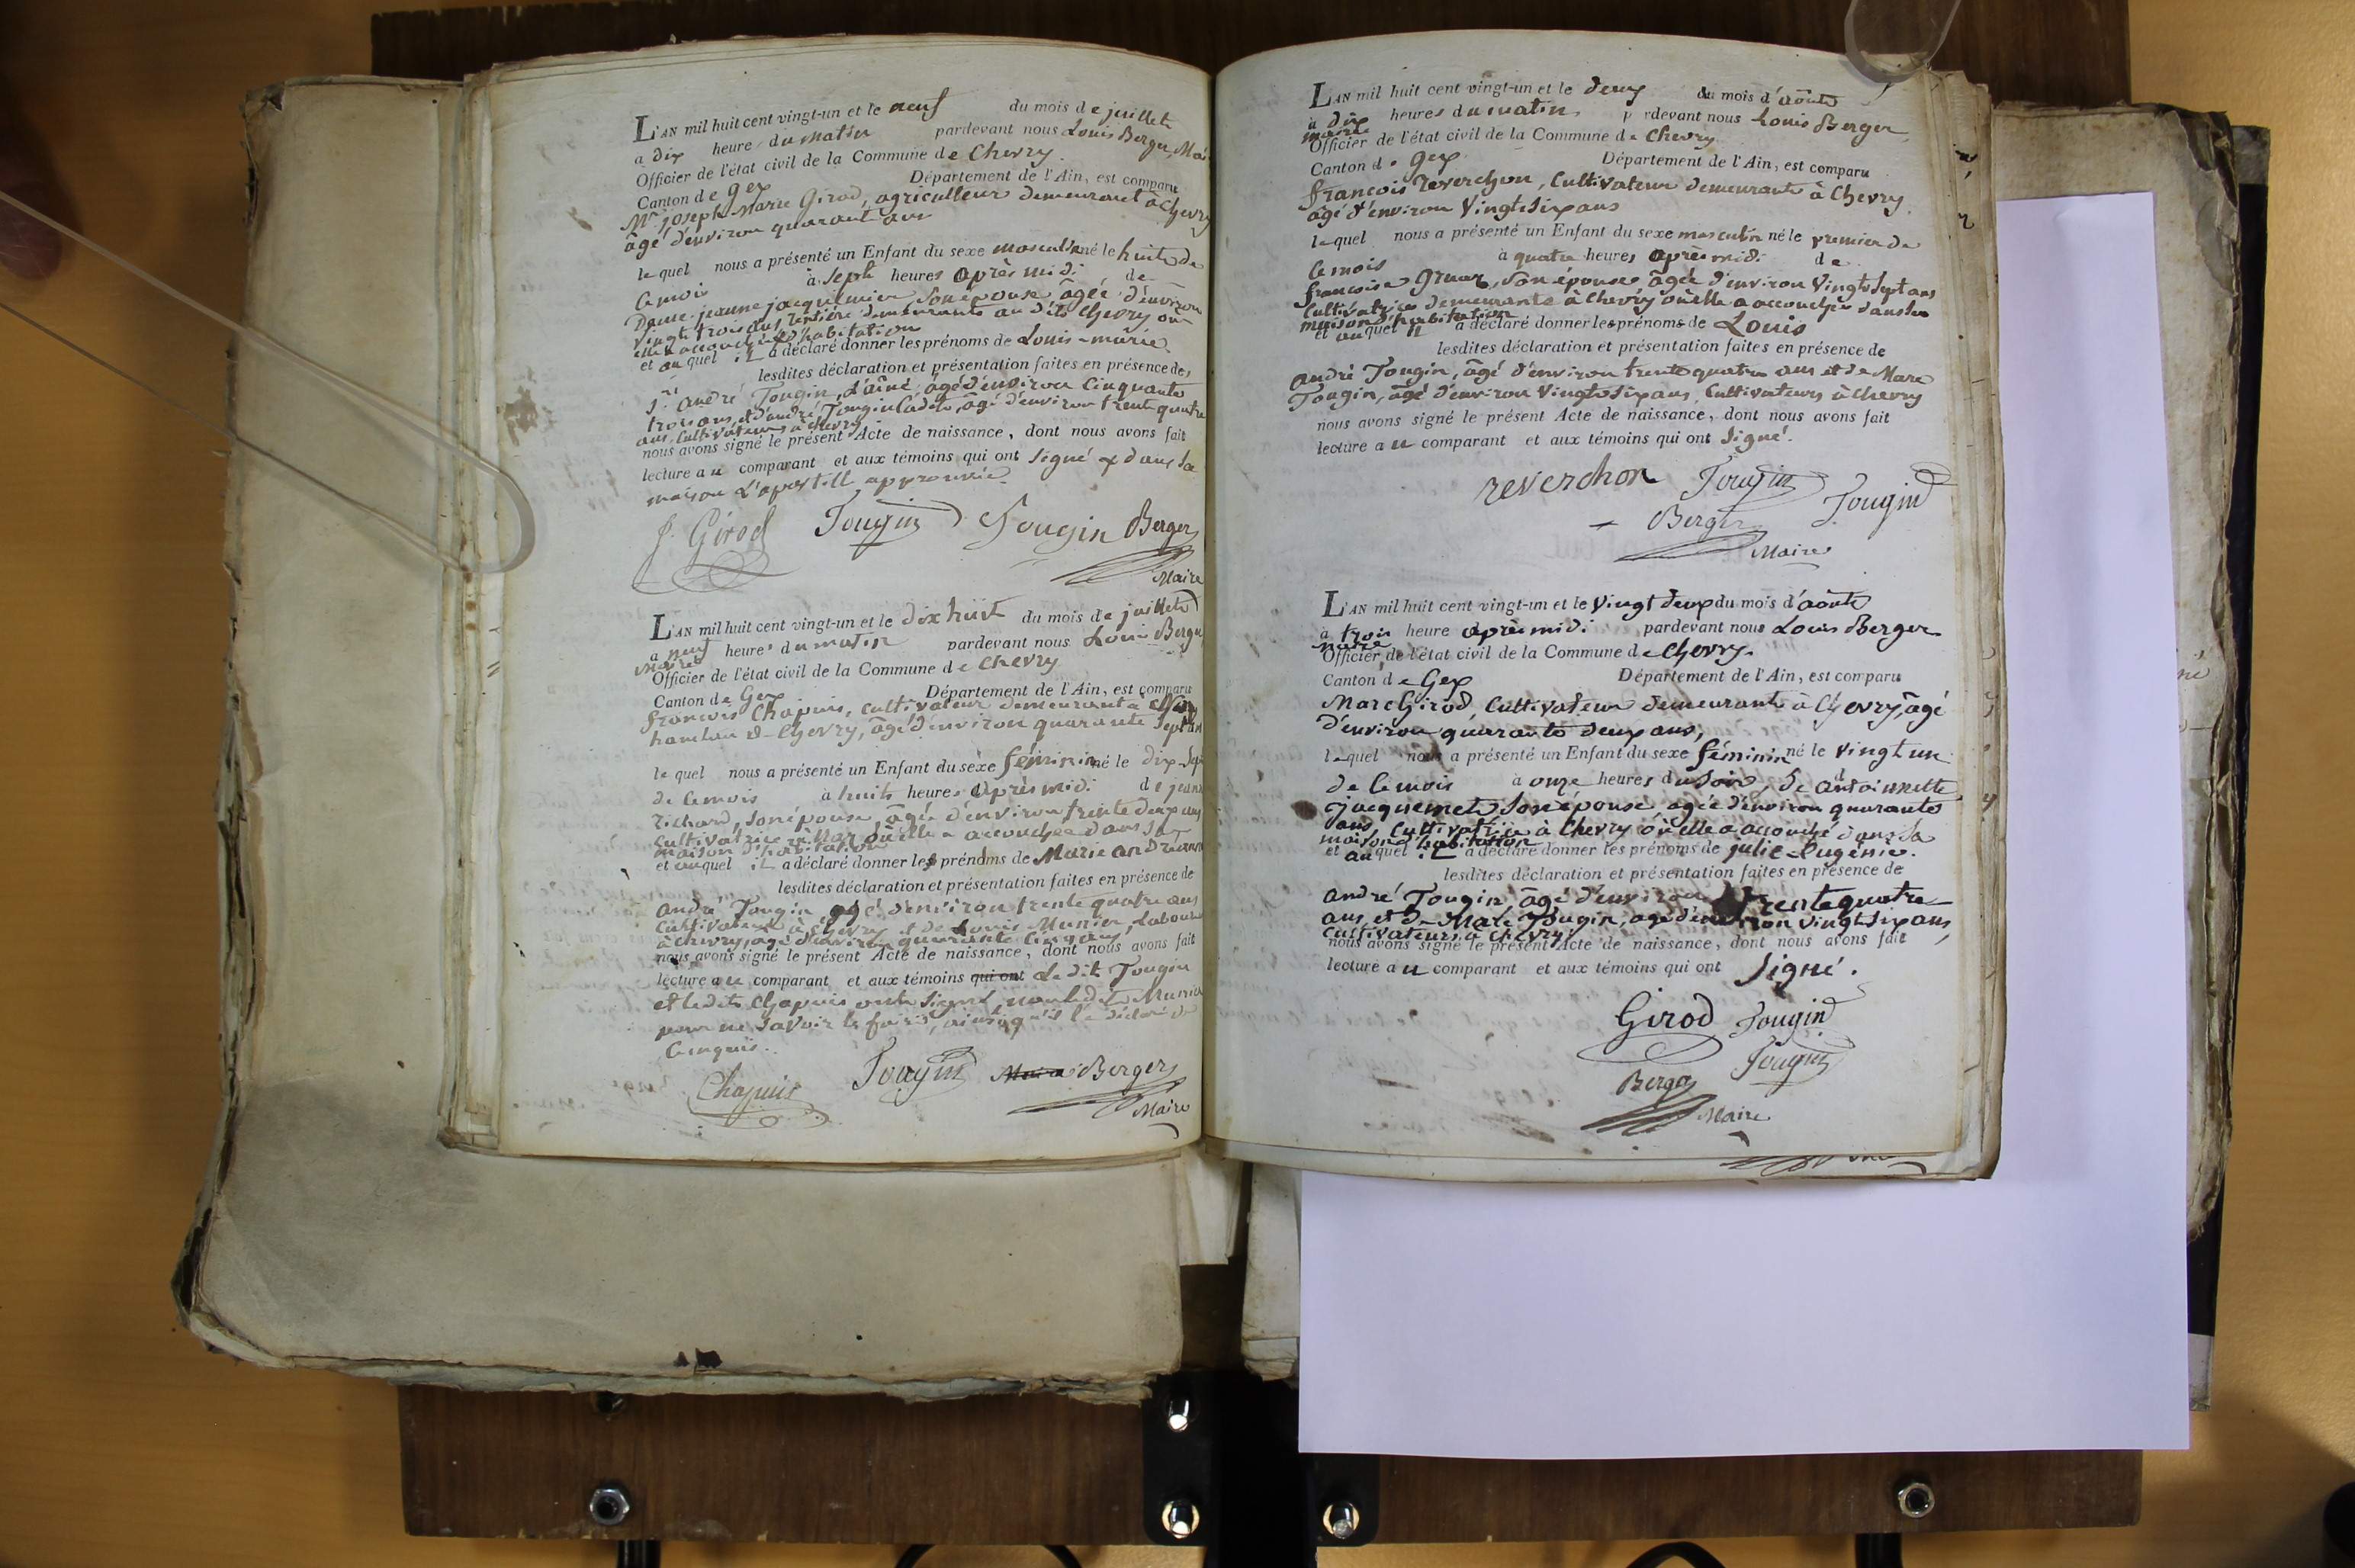 L'AN mil huit cent vingt-un et le neuf du mois de juillet
a dix heure du matin pardevant nous Louis Berger, Mai
Officier de l'état civil de la Commune de Chevry
Canton de Gex Département de l'Ain, est comparu
Mr. joseph-Marie Girod, agriculteur demeurant à Chevry
âgé d'environ quarant'ans
lequel nous a présenté un Enfant du sexe masculin né le huit de
ce mois à sept heures après midi, de
Dame jeanne jacquemier, son épouse âgée d'environ
vingt trois ans, rentière demeurante au dit Chevry où
elle a accouché d'habitation
et auquel il a déclaré donner les prénoms de Louis-marie
lesdites déclaration et présentation faites en présence des
Srs. André Tougin, L'aîné, âgé d'environ Cinquante
trois ans, et d'andré Tougin Cadet, âgé d'environ trente quatre
ans, Cultivateurs à Chevry
nous avons signé le présent Acte de naissance, dont nous avons fait
lecture au comparant et aux témoins qui ont signé × dans sa
maison L'apostill approuvée
J. Girod Tougin Tougin Berger
Maire
L'AN mil huit cent vingt-un et le dix huit du mois de juillet
a neuf heures du matin pardevant nous Louis Berger
Maire
Officier de l'état civil de la Commune de Chevry
Canton de Gex Département de l'Ain, est comparu
françois Chapuis, cultivateur demeurant à
hameau de Chevry, âgé d'environ quarante sept ans
lequel nous a présenté un Enfant du sexe féminin né le dix-sept
de ce mois à huit heures après midi de jeanne
richard, son épouse, âgée d'environ trente deux ans
cultivatrice à Naz où elle a accouchée dans sa
maison d'habitation
et auquel il a déclaré donner les prénoms de Marie andrienne
lesdites déclaration et présentation faites en présence de
andré Tougin âgé d'environ trente quatre ans
Cultivateur à Chevry et de Louis Munier, Laboureur
à chevry, âgé d'environ quarante cinq ans,
nous avons signé le présent Acte de naissance, dont nous avons fait
lecture au comparant et aux témoins qui ont Le dit Tougin
et ledit Chapuis ont signé, non ledit Munier
pour ne savoir le faire, ainsi qu'il l'a déclaré de
ce enquis.
Chapuis Tougin Berger
Maire
L'AN mil huit cent vingt-un et le deux du mois d'août
à dix heures du matin pardevant nous Louis Berger
maire
Officier de l'état civil de la Commune de Chevry
Canton de Gex Département de l'Ain, est comparu
françois reverchon, Cultivateur demeurant à Chevry
âgé d'environ Vingt six ans
lequel nous a présenté un Enfant du sexe masculin né le premier de
ce mois à quatre heures après midi de
françoise Gruaz, son épouse, âgée d'environ Vingt Sept ans
Cultivatrice demeurante à Chevry où elle a accouchée dans sa
maison d'habitation
et auquel il a déclaré donner les prénoms de Louis
lesdites déclaration et présentation faites en présence de
André Tougin, âgé d'environ trente quatre ans et de Marc
Tougin, âgé d'environ Vingt Six ans, Cultivateurs à Chevry
nous avons signé le présent Acte de naissance, dont nous avons fait
lecture au comparant et aux témoins qui ont Signé.
reverchon Tougin Tougin
Berger
Maire
L'AN mil huit cent vingt-un et le vingt deux du mois d'août
à trois heure après midi pardevant nous Louis Berger
maire
Officier de l'état civil de la Commune de Chevry.
Canton de Gex Département de l'Ain, est comparu
Marc Girod, Cultivateur demeurant à Chevry, âgé
d'environ quarante deux ans,
lequel nous a présenté un Enfant du sexe féminin né le vingt un
de ce mois à onze heures du soir, de antoinette
jacquemet, son épouse agée d'environ quarante
ans, Cultivatrice à Chevry où elle a accouché dans sa
maison d'habitation
et auquel il a déclaré donner les prénoms de julie-Eugénie.
lesdites déclaration et présentation faites en présence de
andré Tougin, âgé d'environ trente quatre
ans, et de Marc Tougin, agé d'environ vingt six ans,
Cultivateurs à Chevry,
nous avons signé le présent Acte de naissance, dont nous avons fait
lecture au comparant et aux témoins qui ont Signé.
Girod Tougin
Berger Tougin
Maire